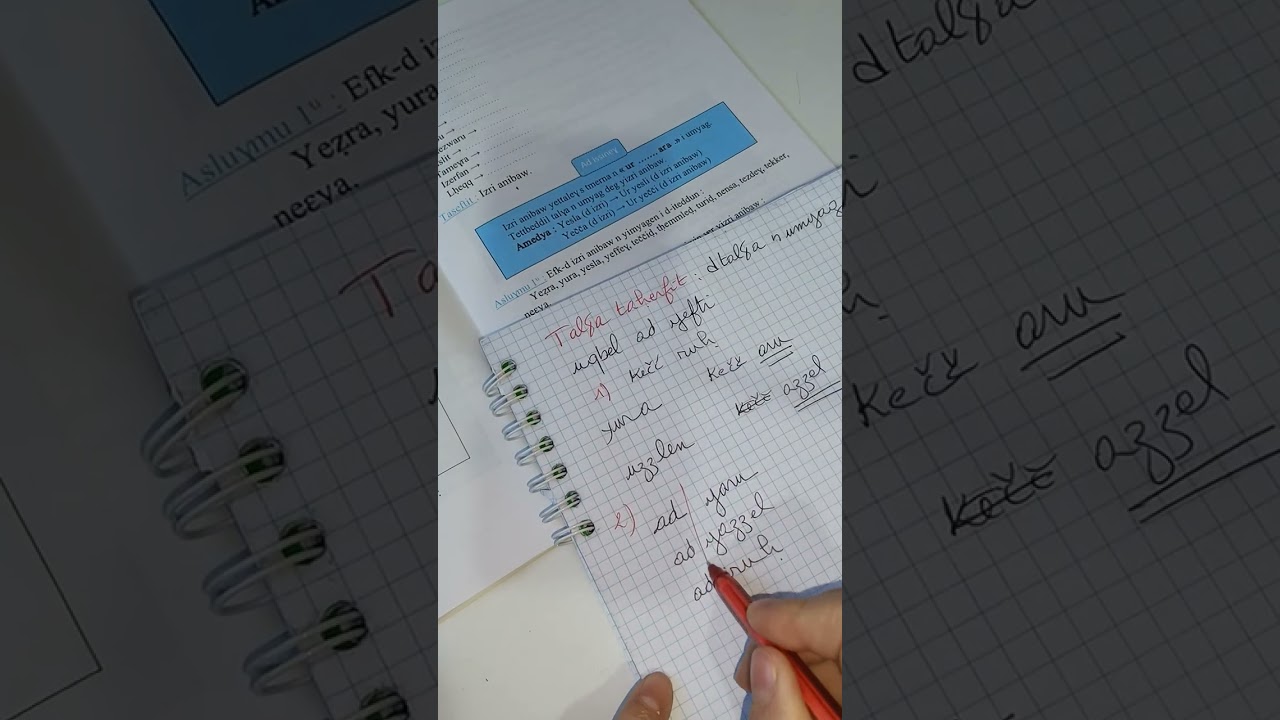 ezwaru →
Tameɣra →
Izerfan →
Lḥeqq →
Taseftit : Izri anibaw.
Ad isineɣ
Izri anibaw yettaleɣ s tmerna n « ur ........ ara » i umyag.
Tettbeddil talɣa n umyag deg yizri anibaw.
Amedya : Yesla (d izri) → Ur yesli (d izri anibaw)
Yečča (d izri) → Ur yečči (d izri anibaw)
Asluɣmu 1ᵘ : Efk-d izri anibaw n yimyagen i d-iteddun :
Yeẓra, yura, yesla, yeffeɣ, teččid, turid, nensa, tezdeɣ, tekker,
neɛya.
Talɣa taḥerfit : d talɣa n umyag
uqbel ad yefti
1) Kečč ruḥ Kečč aru
yura Kečč azzel
uzzlen
2) ad yaru
ad yazzel
ad ruḥ